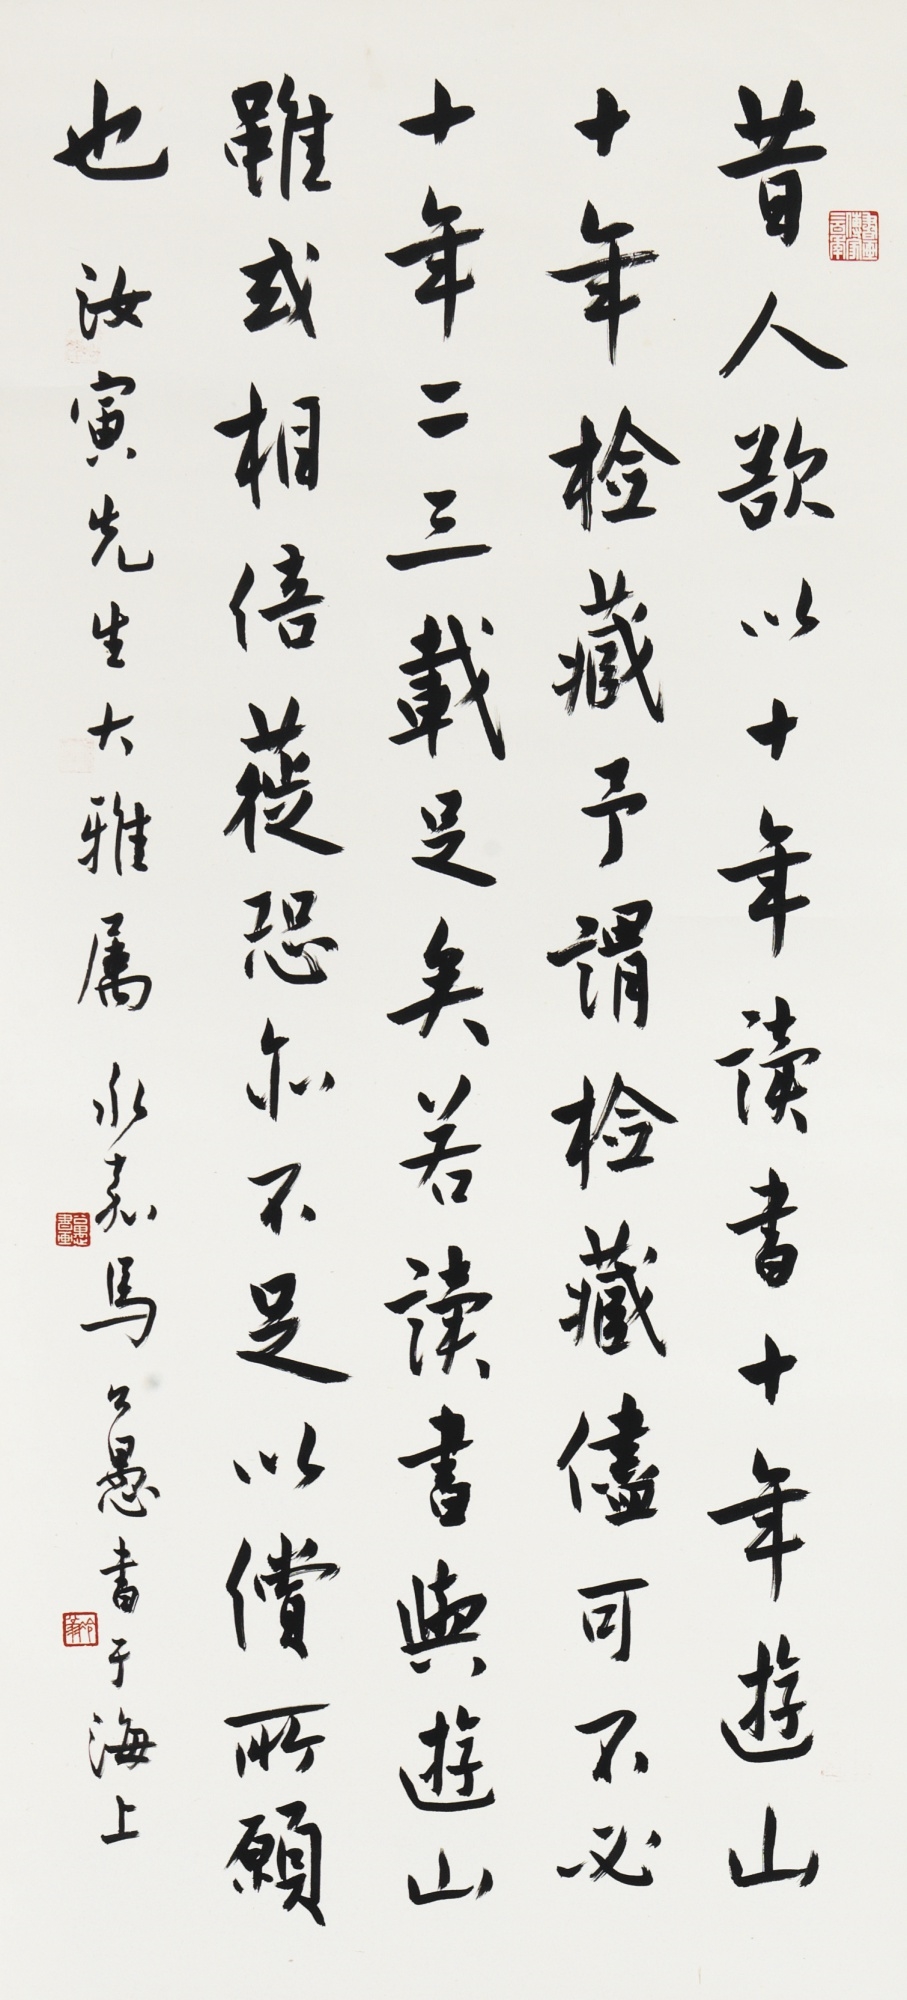 昔人欲以十年读书十年遊山
十年检藏予谓检藏儘可不必
十年二三載足矣若读書與遊山
雖或相倍蓰恐亦不足以償所願
也 汝寅先生大雅属 永嘉馬公愚书于海上